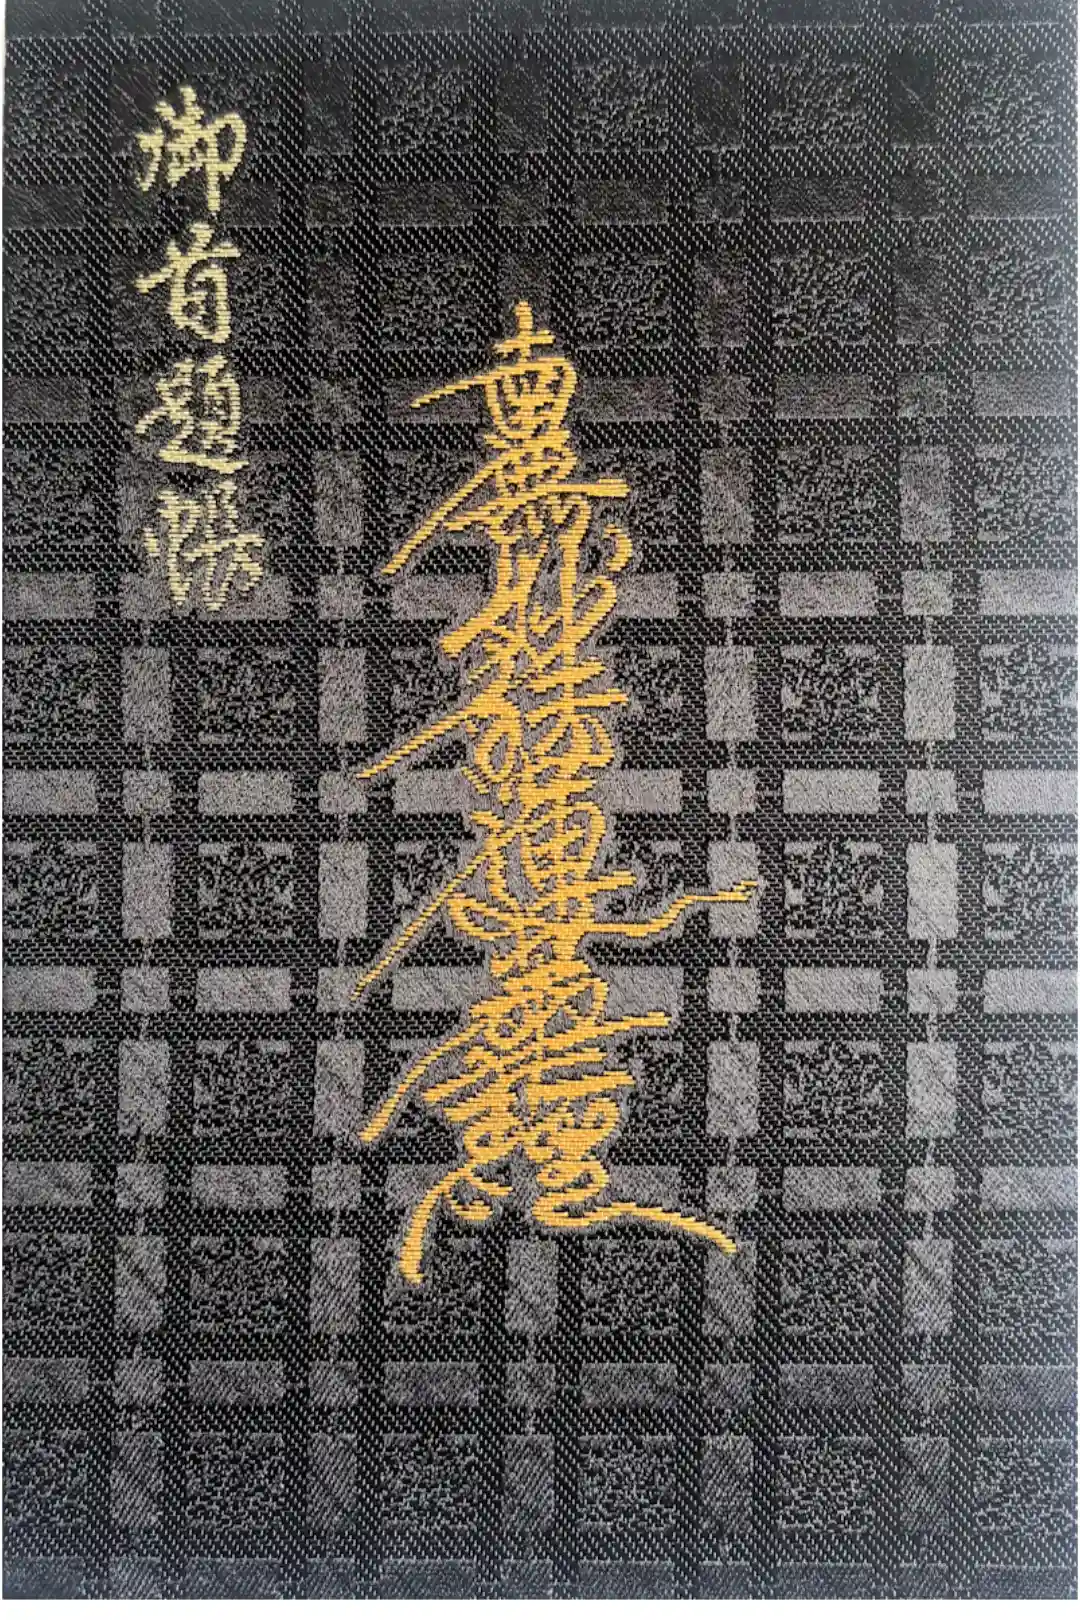 南無妙法蓮華経
御首題帳